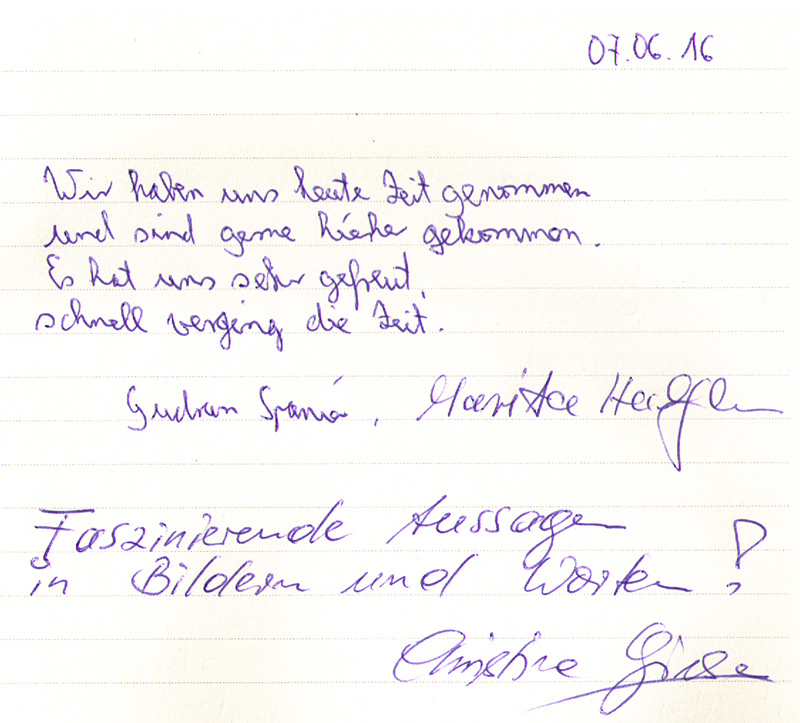 07.06.16
Wir haben uns heute Zeit genommen
und sind gerne hiehe gekommen.
Es hat uns sehr gefreut,
schnell verging die Zeit.
Gudrun Marita
Faszinierende Aussagen
in Bildern und Worten!
Christine